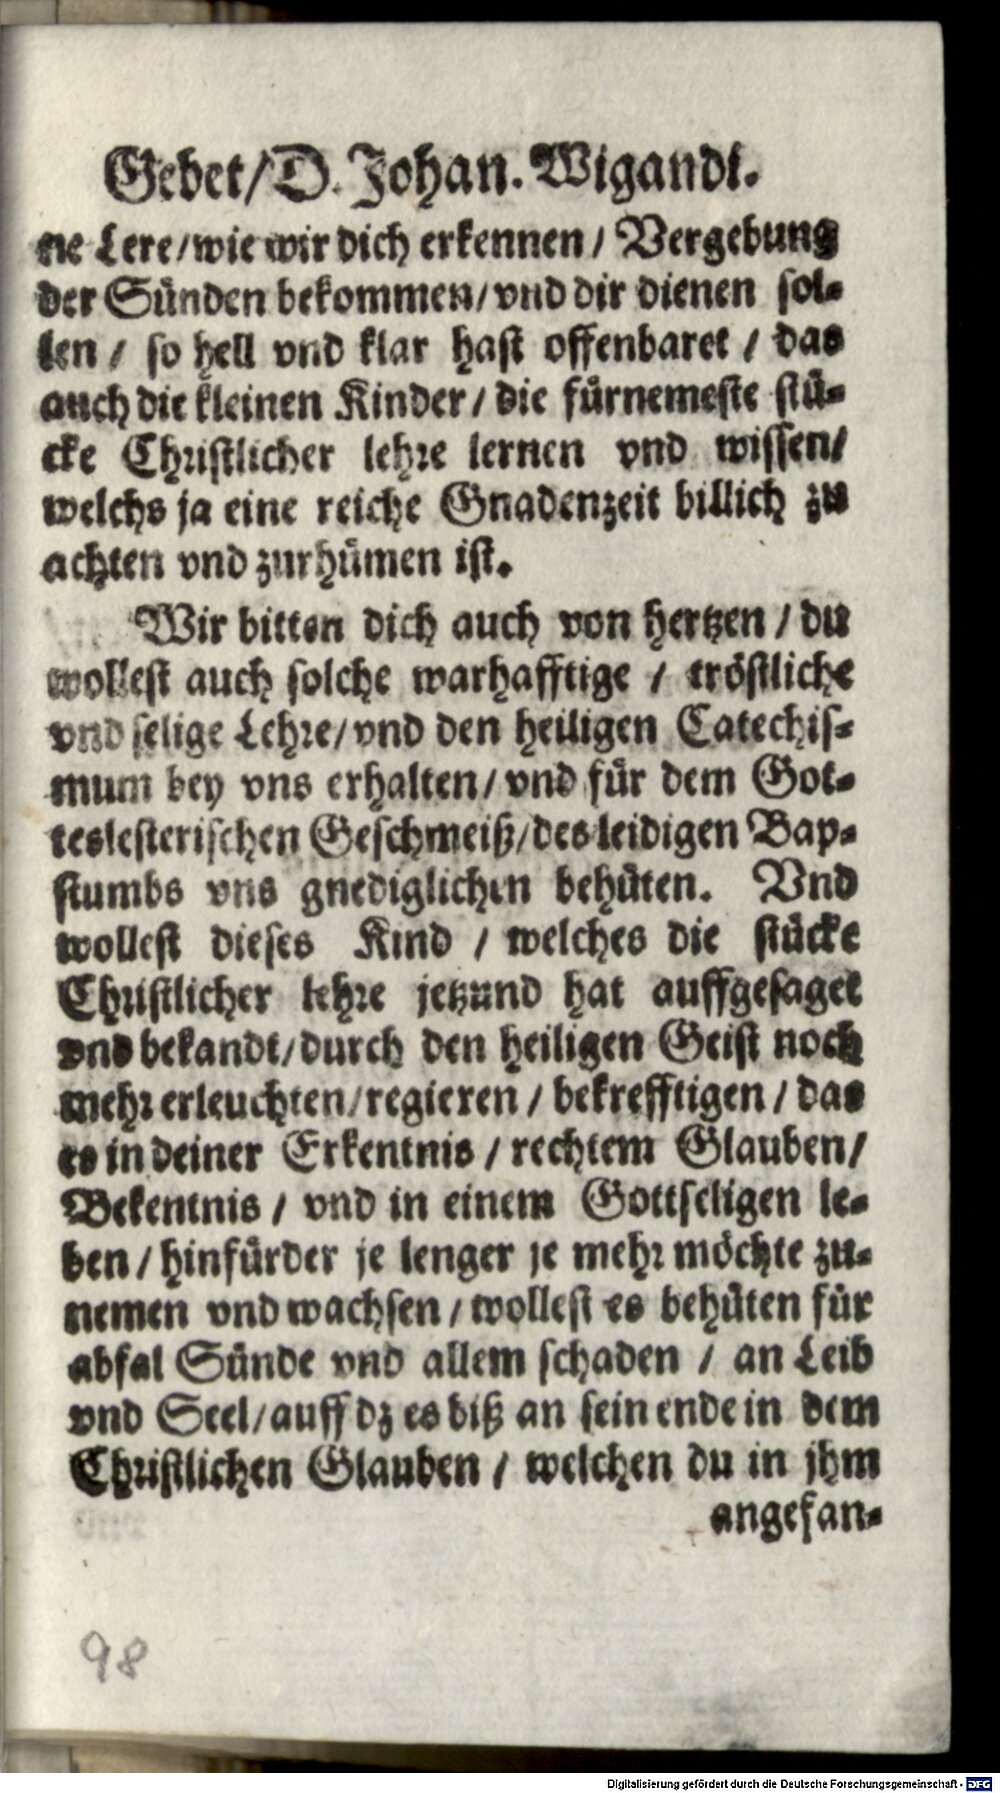 Gebet/D. Johan. Wigandi.
ne Lere/wie wir dich erkennen/ Vergebung
der Sünden bekommen/vnd dir dienen sol-
len / so hell vnd klar hast offenbaret / das
auch die kleinen Kinder/ die fürnemeste stü-
cke Christlicher lehre lernen vnd wissen/
welchs ja eine reiche Gnadenzeit billich zu
achten vnd zurhümen ist.
Wir bitten dich auch von hertzen / du
wollest auch solche warhafftige / tröstliche
vnd selige Lehre/vnd den heiligen Catechis-
mum bey vns erhalten/vnd für dem Got-
teslesterischen Geschmeiß/des leidigen Bap-
stumbs vns gnediglichen behüten. Vnd
wollest dieses Kind / welches die stücke
Christlicher lehre jetzund hat auffgesaget
vnd bekandt/durch den heiligen Geist noch
mehr erleuchten/regieren / bekrefftigen / das
es in deiner Erkentnis / rechtem Glauben/
Bekentnis / vnd in einem Gottseligen le-
ben / hinfürder je lenger je mehr möchte zu-
nemen vnd wachsen / wollest es behüten für
abfal Sünde vnd allem schaden / an Leib
vnd Seel/auff dz es biß an sein ende in dem
Christlichen Glauben / welchen du in jhm
angefan-
98
Digitalisierung gefördert durch die Deutsche Forschungsgemeinschaft - DFG